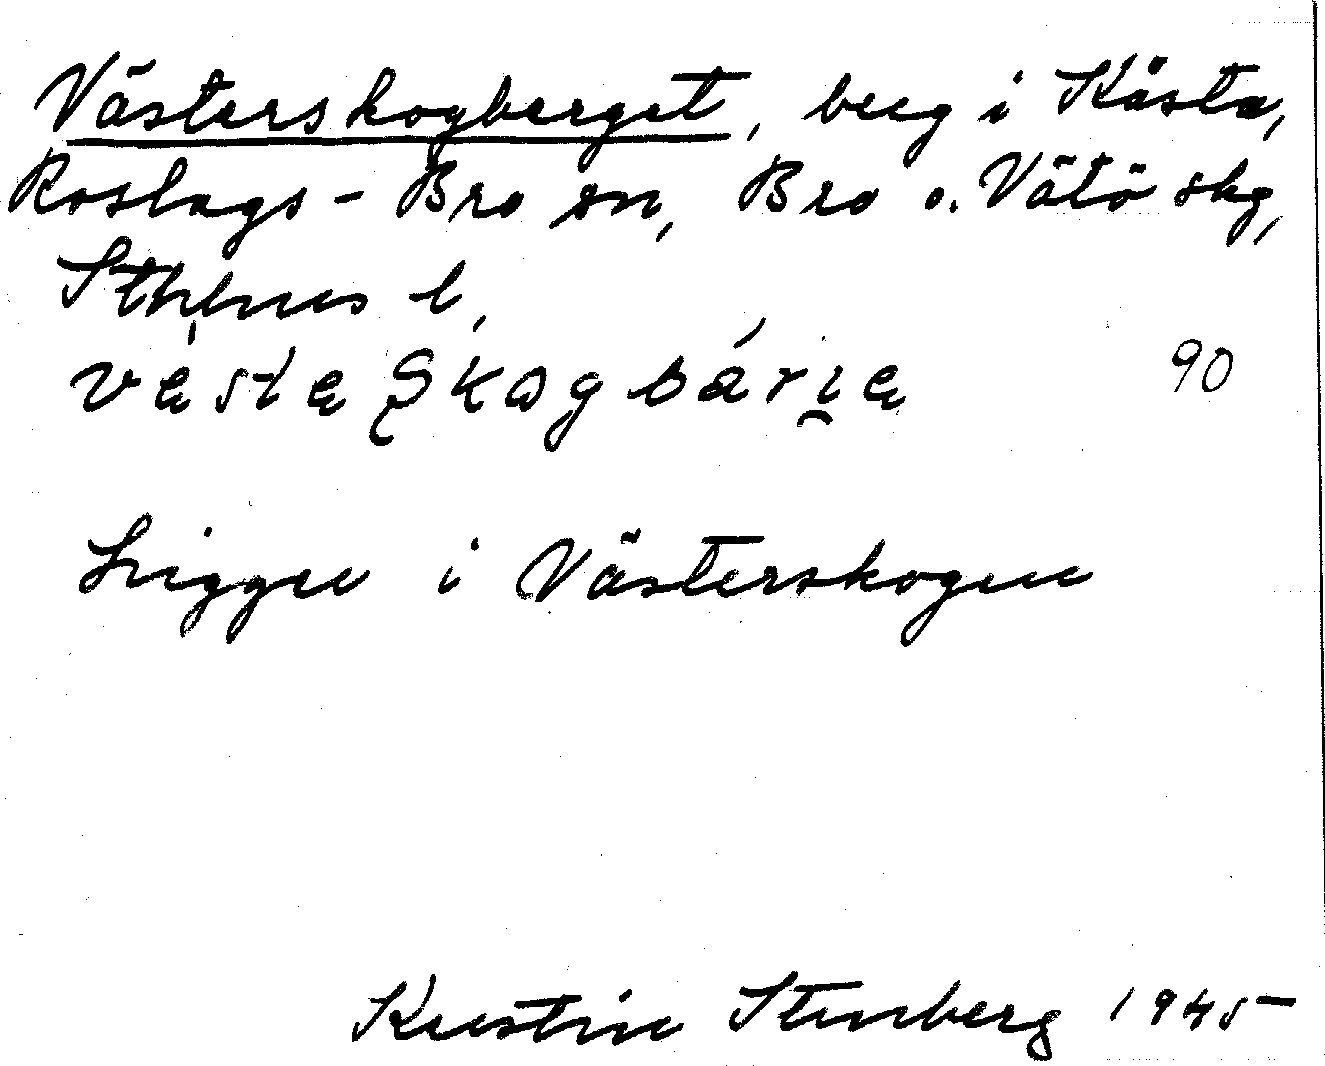 Västerskogberget, berg i Kåsta,
Roslags-Bro sn, Bro o. Vätö skg,
Sthlms l,
90
Ligger i Västerskogen
Kerstin Stenberg 1945